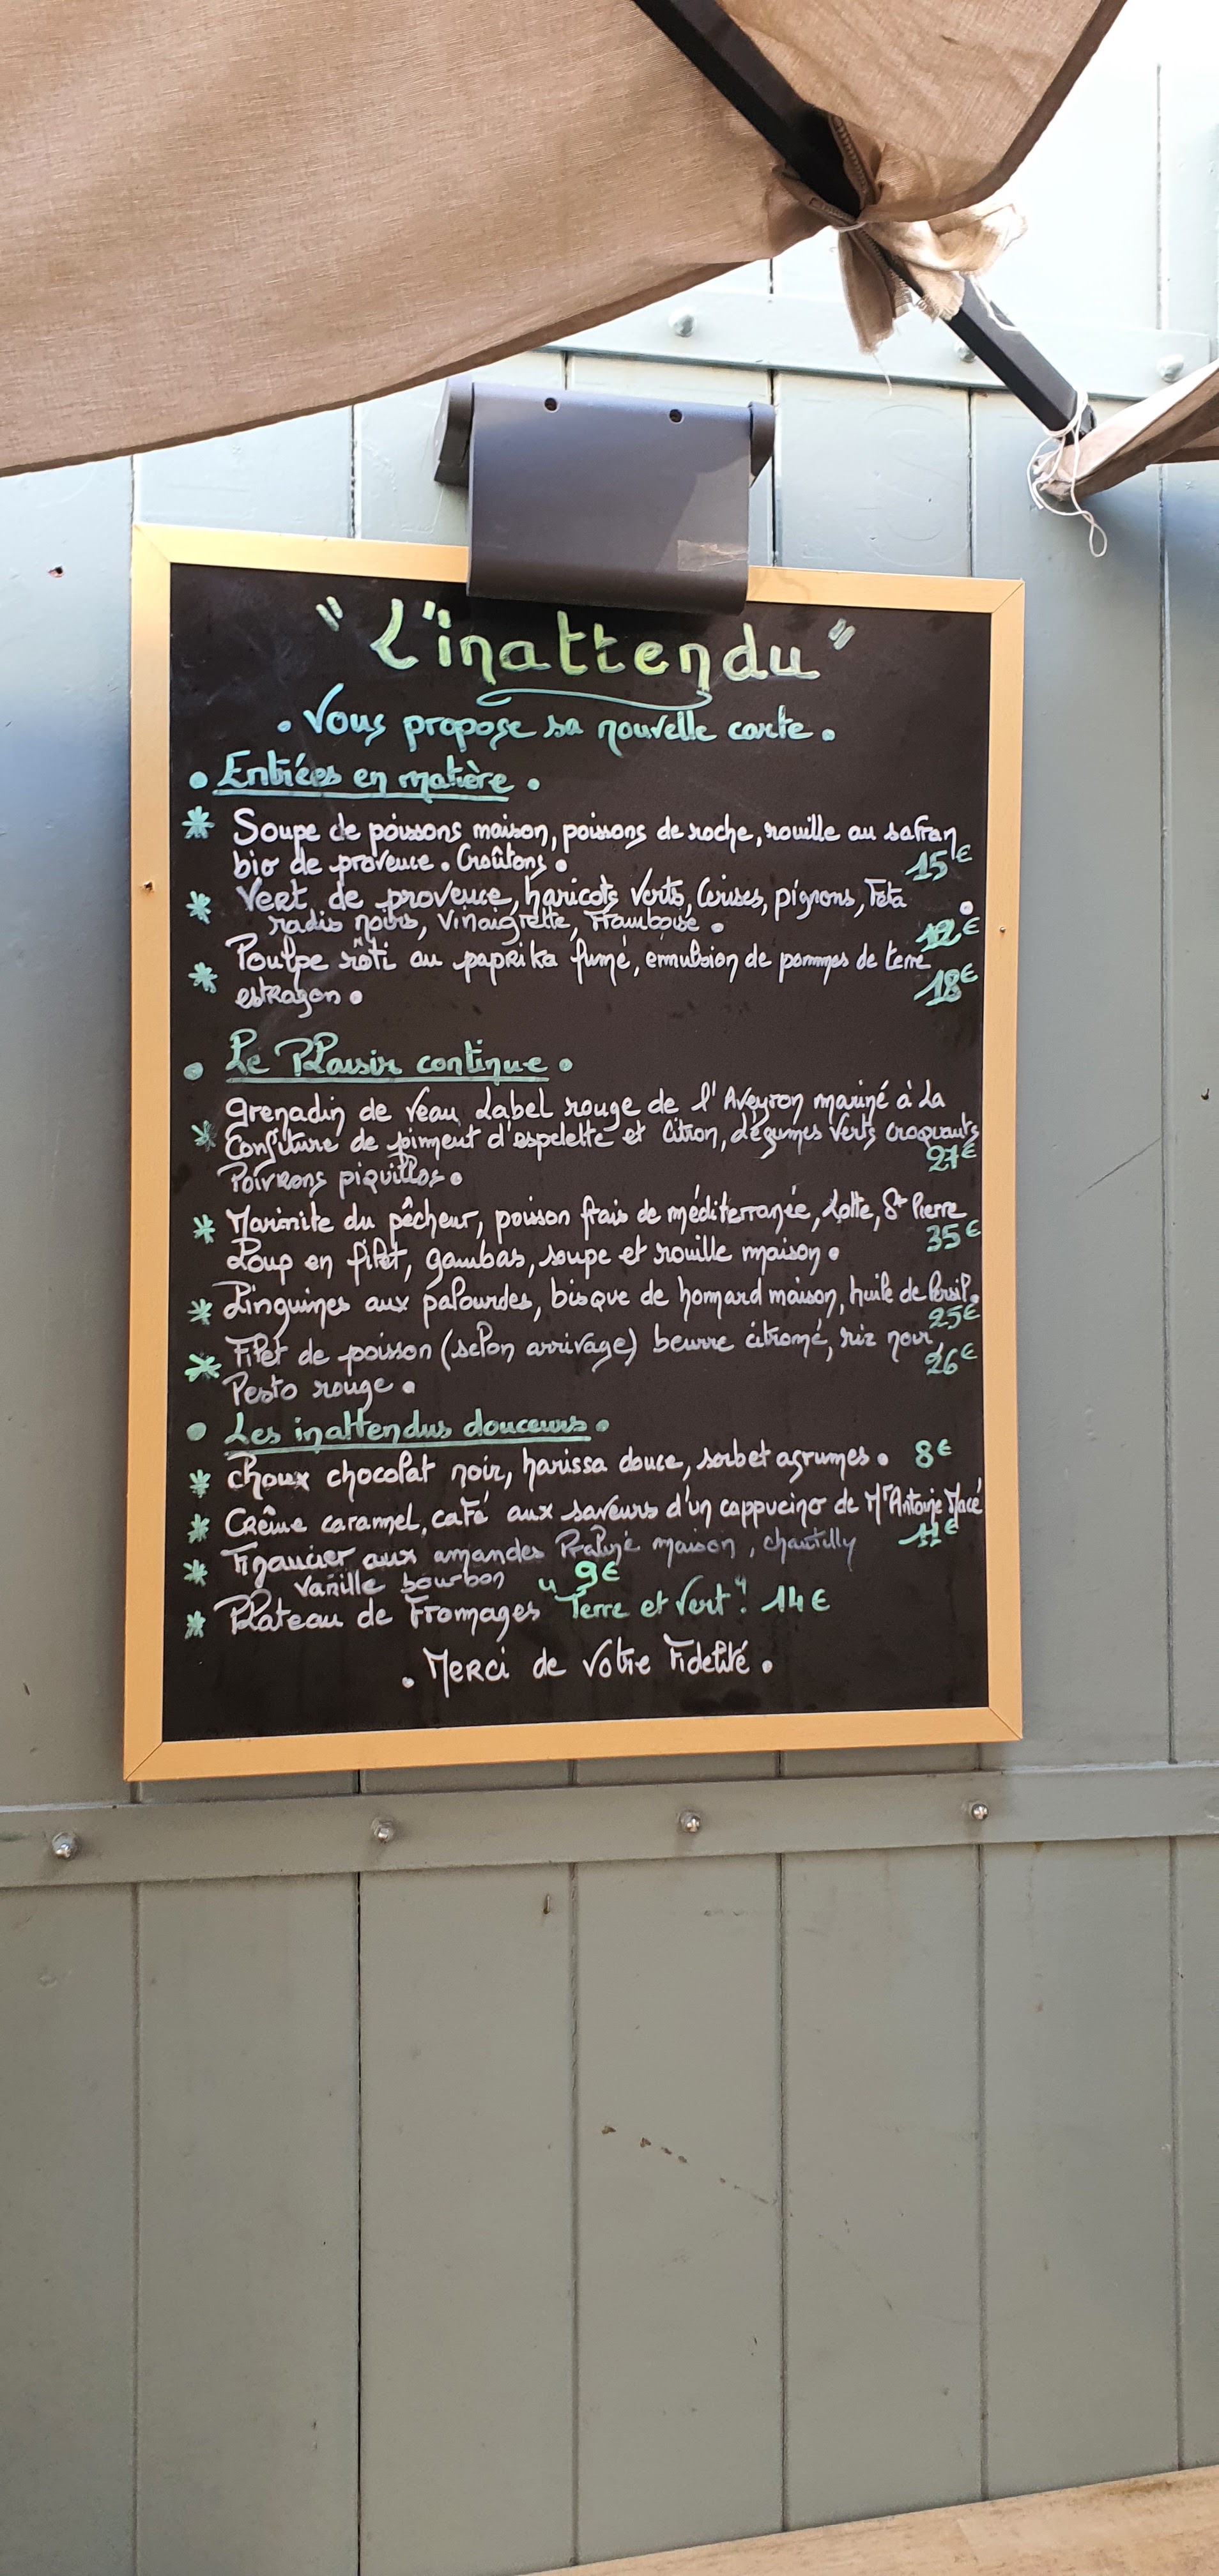 "L'inattendu"
. Vous propose sa nouvelle carte .
. Entrées en matière .
* Soupe de poissons maison, poissons de roche, rouille au safran
bio de provence . Croûtons .
15€
* Vert de provence, haricots verts, Cerises, pignons, Feta
radis noirs, Vinaigrette, Framboise .
12€
* Poulpe rôti au paprika fumé, emulsion de pommes de terre
estragon .
18€
. Le Plaisir continue .
* Grenadin de veau Label rouge de l'Aveyron mariné à La
Confiture de piment d'espelette et Citron, légumes Verts croquants
27€
Poivrons piquillos .
* Marmite du pêcheur, poisson frais de méditerranée, Lotte, St Pierre
35€
Loup en filet, gambas, soupe et rouille maison .
* Linguines aux palourdes, bisque de homard maison, huile de Persil.
25€
* Filet de poisson (selon arrivage) beurre citronné, riz noir,
26€
Pesto rouge .
. Les inattendus douceurs .
* Choux chocolat noir, harissa douce, sorbet agrumes . 8€
* Crême caramel, café aux saveurs d'un cappucino de Mr Antoine Macé
11€
* Financier aux amandes Praliné maison, chantilly
vanille bourbon 9€
* Plateau de Fromages "Terre et Vert". 14€
. Merci de Votre Fidelité .